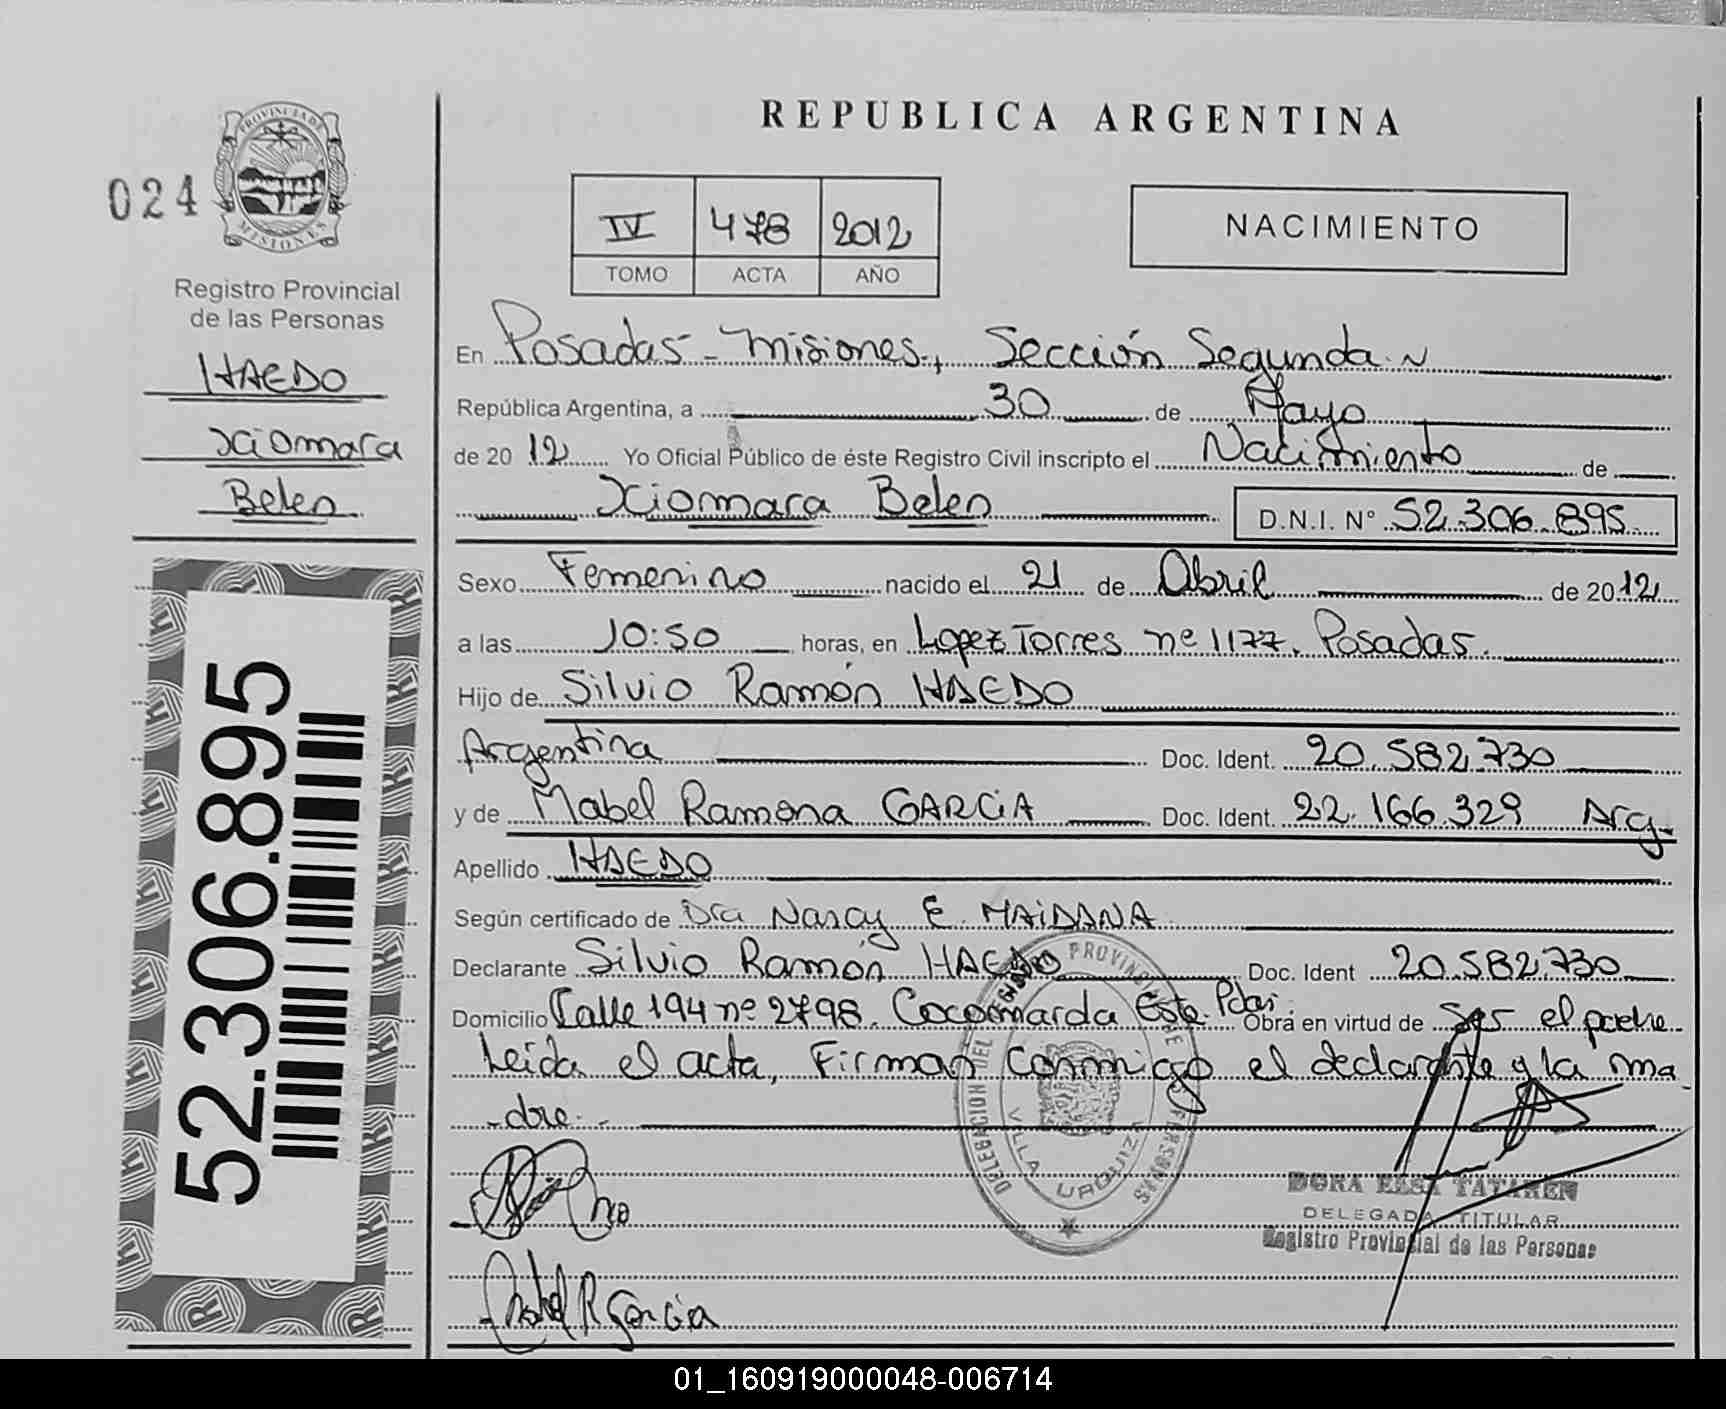 REPUBLICA ARGENTINA
024
PROVINCIA DE
MISIONES
Registro Provincial
de las Personas
HAEDO
Xiomara
Belen
52.306.895
IV 478 2012
TOMO ACTA AÑO
NACIMIENTO
En Posadas - Misiones, Sección Segunda
República Argentina, a 30 de Mayo
de 2012 Yo Oficial Público de éste Registro Civil inscripto el Nacimiento de
Xiomara Belen D.N.I. N° 52.306.895
Sexo Femenino nacido el 21 de Abril de 2012
a las 10:50 horas, en Lopez Torres nº 1177. Posadas.
Hijo de Silvio Ramón HAEDO
Argentina Doc. Ident. 20.582.730
y de Mabel Ramona GARCiA Doc. Ident. 22.166.329 Arg.
Apellido HAEDO
Según certificado de Dra Nancy E. MAiDANA
Declarante Silvio Ramón HAEDO Doc. Ident 20.582.730
Domicilio Calle 194 nº 2798. Cocomarda Este. Pdas. Obra en virtud de ser el padre
Leida el acta, Firman conmigo el declarante y la ma
-dre.-
DELEGACION DEL REGISTRO PROVINCIAL DE LAS PERSONAS
VILLA URQUIZA
DORA ELSA TATAREN
DELEGADA TITULAR
Registro Provincial de las Personas
Mabel R Garcia
01_160919000048-006714